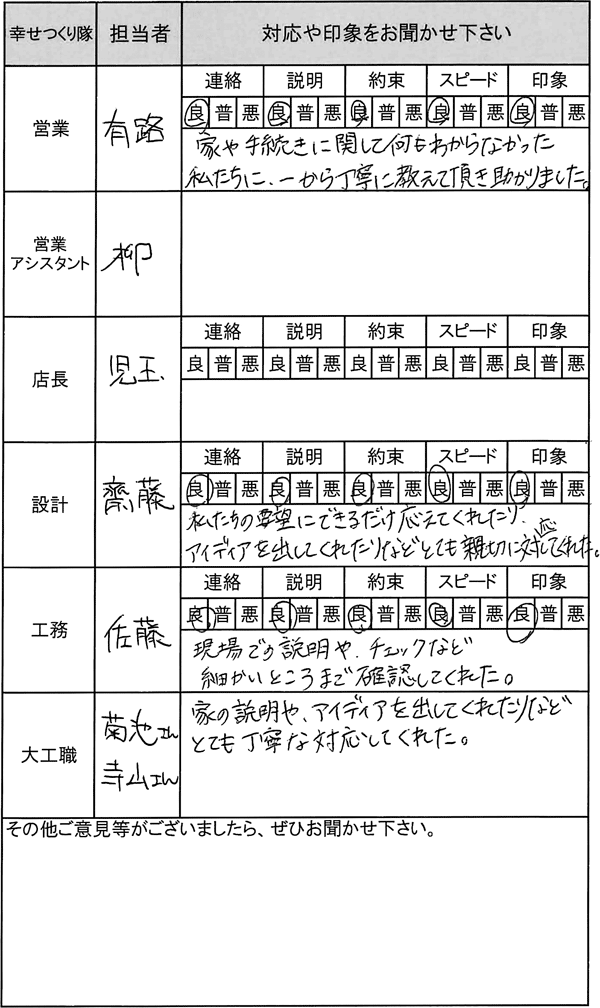 幸せつくり隊 担当者 対応や印象をお聞かせ下さい
営業 有路
連絡 説明 約束 スピード 印象
良 普 悪 良 普 悪 良 普 悪 良 普 悪 良 普 悪
家や手続きに関して何もわからなかった
私たちに、一から丁寧に教えて頂き助かりました。
営業
アシスタント 柳
店長 児玉
連絡 説明 約束 スピード 印象
良 普 悪 良 普 悪 良 普 悪 良 普 悪 良 普 悪
設計 齋藤
連絡 説明 約束 スピード 印象
良 普 悪 良 普 悪 良 普 悪 良 普 悪 良 普 悪
私たちの要望にできるだけ応えてくれたり、
アイディアを出してくれたりなどとても親切に対応してくれた。
工務 佐藤
連絡 説明 約束 スピード 印象
良 普 悪 良 普 悪 良 普 悪 良 普 悪 良 普 悪
現場での説明や、チェックなど
細かいところまで確認してくれた。
大工職 菊池さん
寺山さん
家の説明や、アイディアを出してくれたりなど
とても丁寧な対応してくれた。
その他ご意見等がございましたら、ぜひお聞かせ下さい。